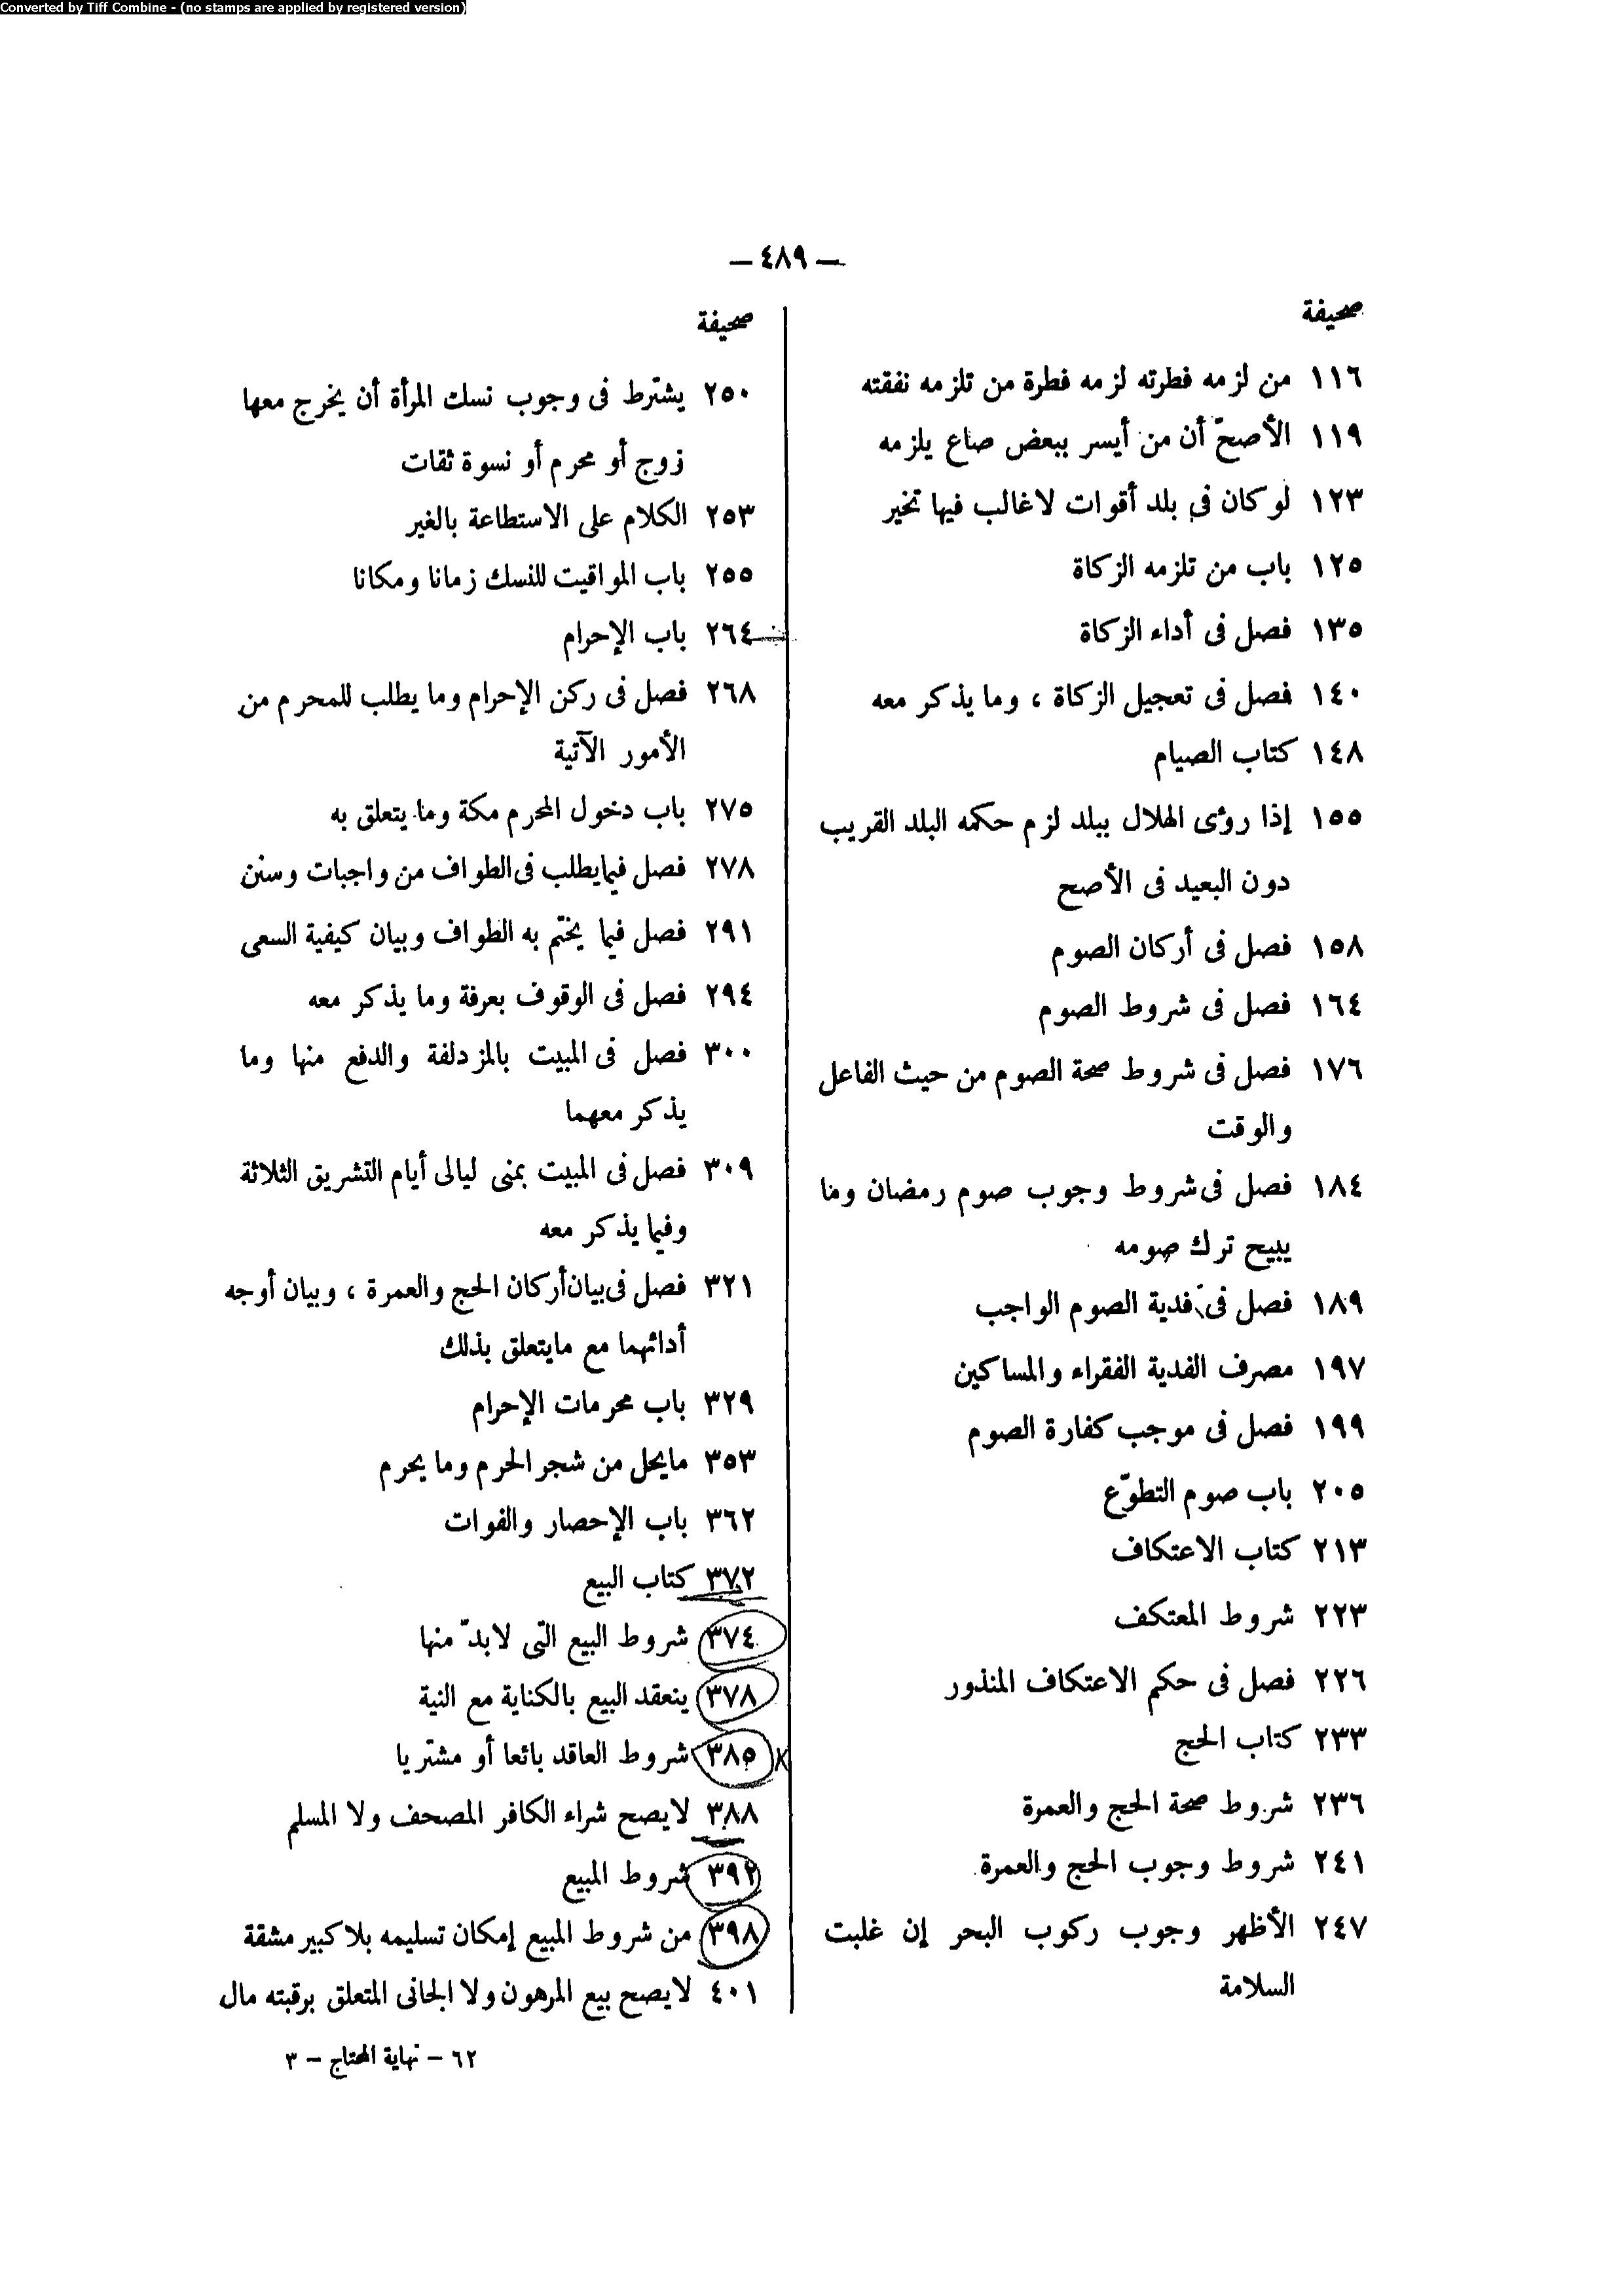 Converted by Tiff Combine - (no stamps are applied by registered version)
— ٤٨٩ —
صحيفة
١١٦ من لزمه فطرته لزمه فطرة من تلزمه نفقته
١١٩ الأصحّ أن من أيسر ببعض صاع يلزمه
١٢٣ لو كان فى بلد أقوات لاغالب فيها تخير
١٢٥ باب من تلزمه الزكاة
١٣٥ فصل فى أداء الزكاة
١٤٠ فصل فى تعجيل الزكاة ، وما يذكر معه
١٤٨ كتاب الصيام
١٥٥ إذا رؤى الهلال ببلد لزم حكمه البلد القريب
دون البعيد فى الأصح
١٥٨ فصل فى أركان الصوم
١٦٤ فصل فى شروط الصوم
١٧٦ فصل فى شروط صحة الصوم من حيث الفاعل
والوقت
١٨٤ فصل فى شروط وجوب صوم رمضان وما
يبيح ترك صومه
١٨٩ فصل فى فدية الصوم الواجب
١٩٧ مصرف الفدية الفقراء والمساكين
١٩٩ فصل فى موجب كفارة الصوم
٢٠٥ باب صوم التطوّع
٢١٣ كتاب الاعتكاف
٢٢٣ شروط المعتكف
٢٢٦ فصل فى حكم الاعتكاف المنذور
٢٣٣ كتاب الحج
٢٣٦ شروط صحة الحج والعمرة
٢٤١ شروط وجوب الحج والعمرة
٢٤٧ الأظهر وجوب ركوب البحر إن غلبت
السلامة
صحيفة
٢٥٠ يشترط فى وجوب نسك المرأة أن يخرج معها
زوج أو محرم أو نسوة ثقات
٢٥٣ الكلام على الاستطاعة بالغير
٢٥٥ باب المواقيت للنسك زمانا ومكانا
٢٦٤ باب الإحرام
٢٦٨ فصل فى ركن الإحرام وما يطلب للمحرم من
الأمور الآتية
٢٧٥ باب دخول المحرم مكة وما يتعلق به
٢٧٨ فصل فيما يطلب فى الطواف من واجبات وسنن
٢٩١ فصل فيما يختم به الطواف وبيان كيفية السعى
٢٩٤ فصل فى الوقوف بعرفة وما يذكر معه
٣٠٠ فصل فى المبيت بالمزدلفة والدفع منها وما
يذكر معهما
٣٠٩ فصل فى المبيت بمنى ليالى أيام التشريق الثلاثة
وفيما يذكر معه
٣٢١ فصل فى بيان أركان الحج والعمرة ، وبيان أوجه
أدائهما مع مايتعلق بذلك
٣٢٩ باب محرمات الإحرام
٣٥٣ مايحل من شجر الحرم وما يحرم
٣٦٢ باب الإحصار والفوات
٣٧٢ كتاب البيع
٣٧٤ شروط البيع التى لابدّ منها
٣٧٨ ينعقد البيع بالكناية مع النية
٣٨٥ شروط العاقد بائعا أو مشتريا
٣٨٨ لايصح شراء الكافر المصحف ولا المسلم
٣٩٢ شروط المبيع
٣٩٨ من شروط المبيع إمكان تسليمه بلا كبير مشقة
٤٠١ لايصح بيع المرهون ولا الجانى المتعلق برقبته مال
٦٢ – نهاية المحتاج – ٣